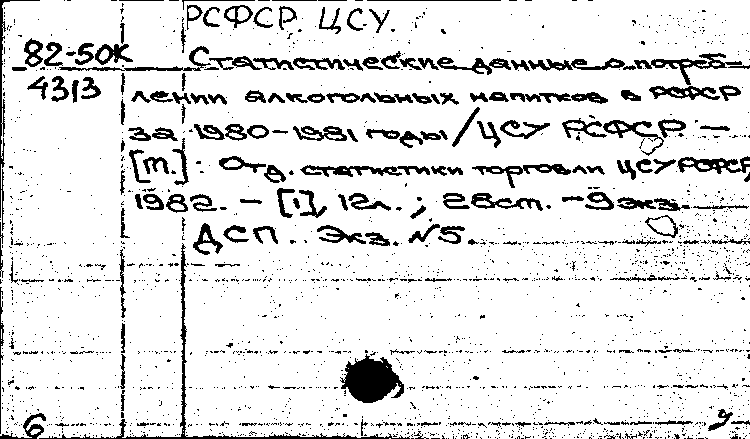 РСФСР. ЦСУ.
82-50К Статистические данные о потреб-
4313 лении алкогольных напитков в РСФСР
за 1980-1981 годы / ЦСУ РСФСР. —
[М.]: Отд. статистики торговли ЦСУ РСФСР,
1982. - [1], 12л. ; 28см. - 9 экз.
ДСП. Экз. №5.
6